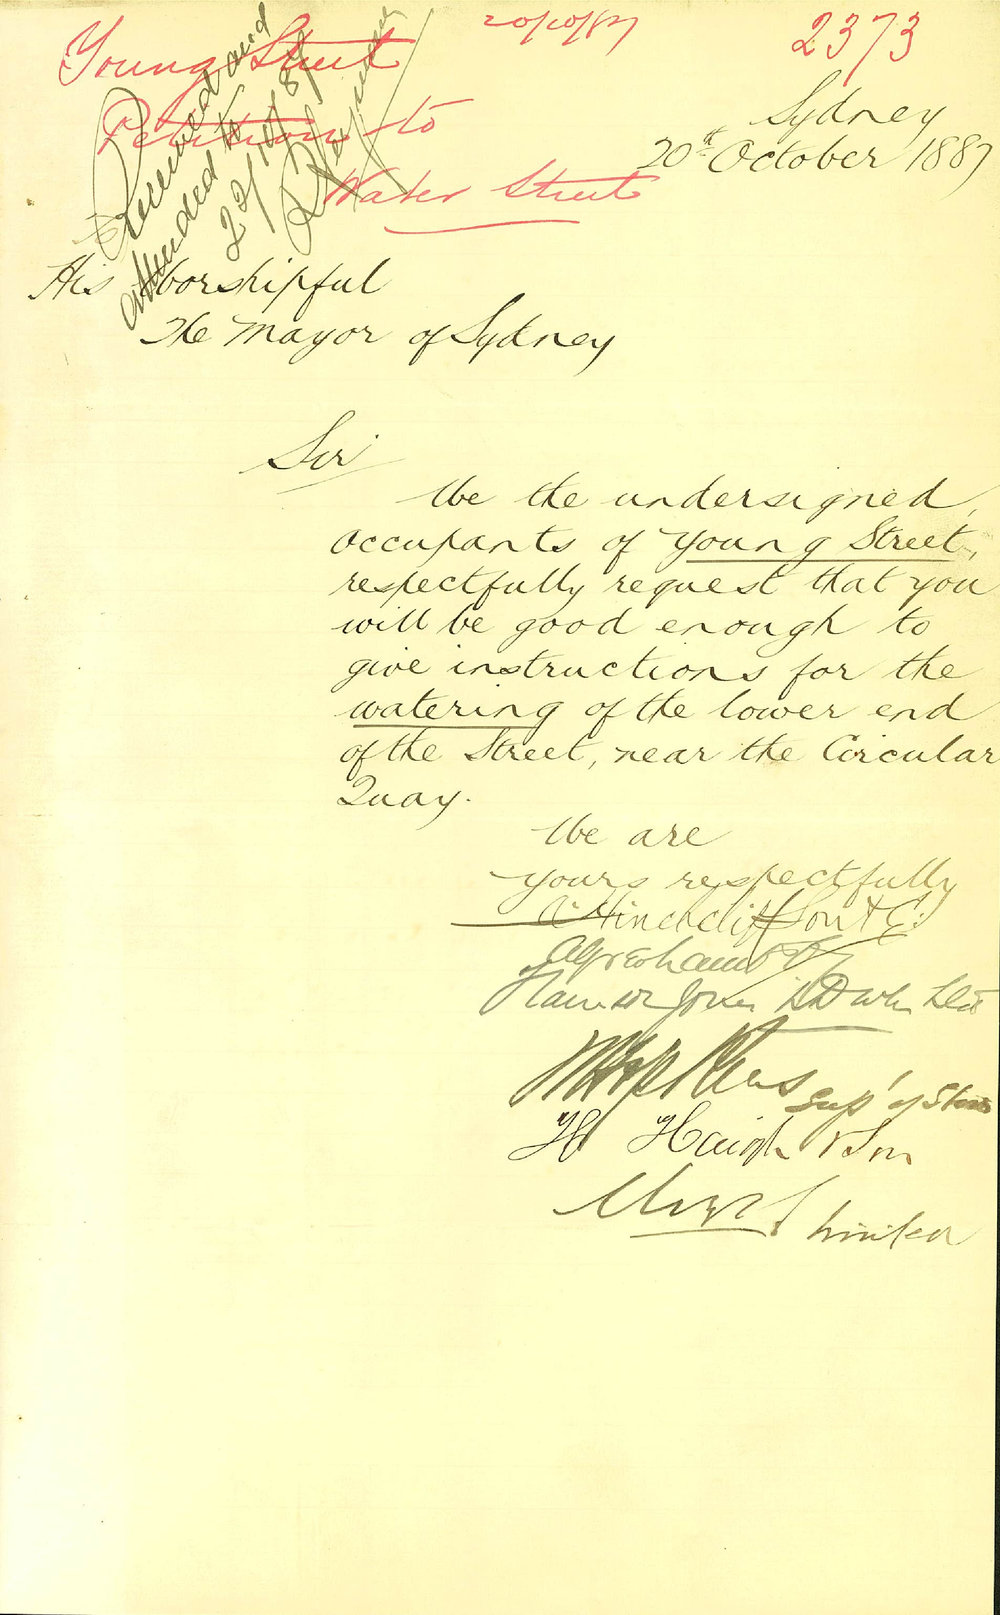 20/10/87
2373
Young Street
Petition to
Water Street
Received and
attended to
22/10/87
Sydney
20th October 1887
His Worshipful
The Mayor of Sydney
Sir
We the undersigned,
occupants of Young Street,
respectfully request that you
will be good enough to
give instructions for the
watering of the lower end
of the Street, near the Circular
Quay.
We are
yours respectfully
Hinchcliff Son & Co
Harrison Jones & Devlin Ltd
H Haigh & Son
Limited